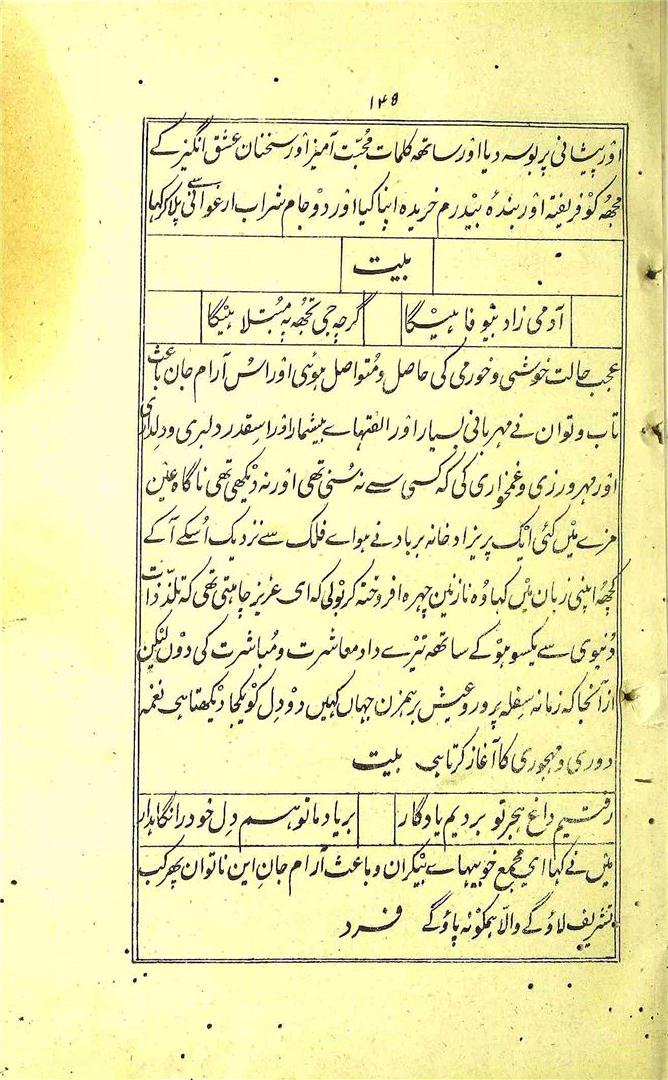 ۱۴۵
اور پیشانی پر بوسہ دیا اور ساتھہ کلمات محبّت آمیز اور سخنان عشق انگیز کے
مجھہ کو فریفتہ اور بندۂ بیدرم خریدہ اپنا کیا اور دو جام شراب ارغوانی سے پلا کر کہا
بیت
آدمی زاد بیوفا ہیگا گرچہ جی تجھہ پہ مُبتلا ہیگا
عجب حالت خوشی و خورمی کی حاصل و مُتواصل ہوئی اور اُس آرام جان باعث
تاب و توان نے مہربانی بسیار اور الفتہاے بیشمار اور اسقدر دلبری و دلداری
اور مہرورزی و غمخواری کی کہ کسی سے نہ سُنی تھی اور نہ دیکھی تھی ناگاہ عین
مزے میں کئی ایک پریزاد خانہ برباد نے ہواے فلک سے نزدیک اُسکے آ کے
کچھہ اپنی زبان میں کہا وُہ نازنین چہرہ افروختہ کر بولی کہ ای عزیز چاہتی تھی کہ تلذّذات
دُنیوی سے یکسو ہو کے ساتھہ تیرے داد معاشرت و مُباشرت کی دوں لیکن
از آنجا کہ زمانہ سِفلہ پرور و عیش برہمزن جہاں کہیں دو دِل کو یکجا دیکھتا ہی نغمہ
دوری و مہجوری کا آغاز کرتا ہی بیت
رفتیم داغ ہجر تو بردیم یادگار بر یاد ما تو ہم دِل خود را نگاہدار
میں نے کہا ای مجمع خوبیہاے بیکران و باعث آرام جان این ناتوان پھر کب
تشریف لاؤگے والّا ہمکو نہ پاؤگے فرد